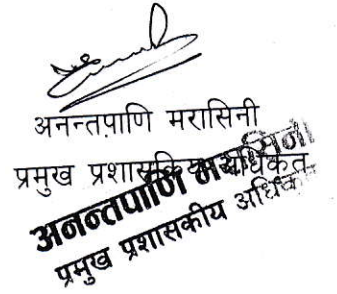 अनन्तपाणि मरासिनी
प्रमुख प्रशासकिय अधिकृत
अनन्तपाणि मरासिनी
प्रमुख प्रशासकीय अधिकृत